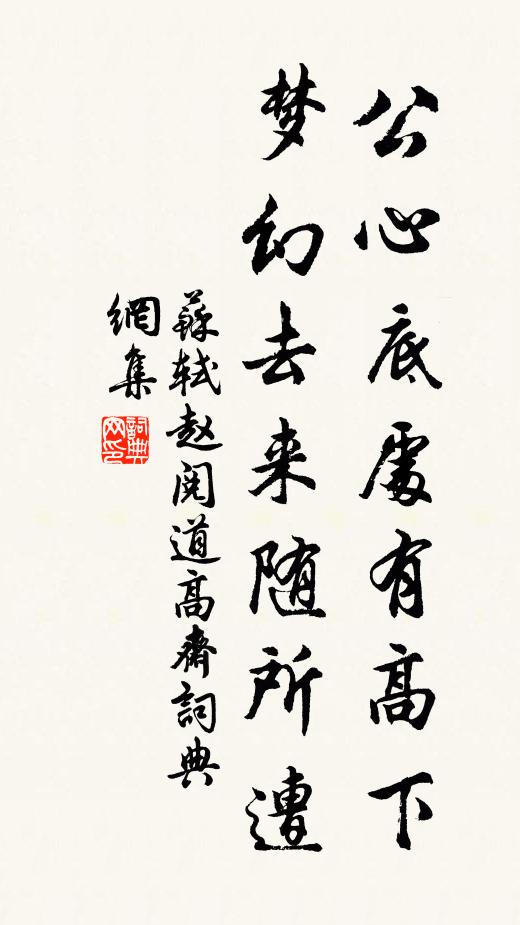 公心底處有高下
梦幻去来随所遭
蘇軾赵阅道高齋詞典
網集
詞典
网印